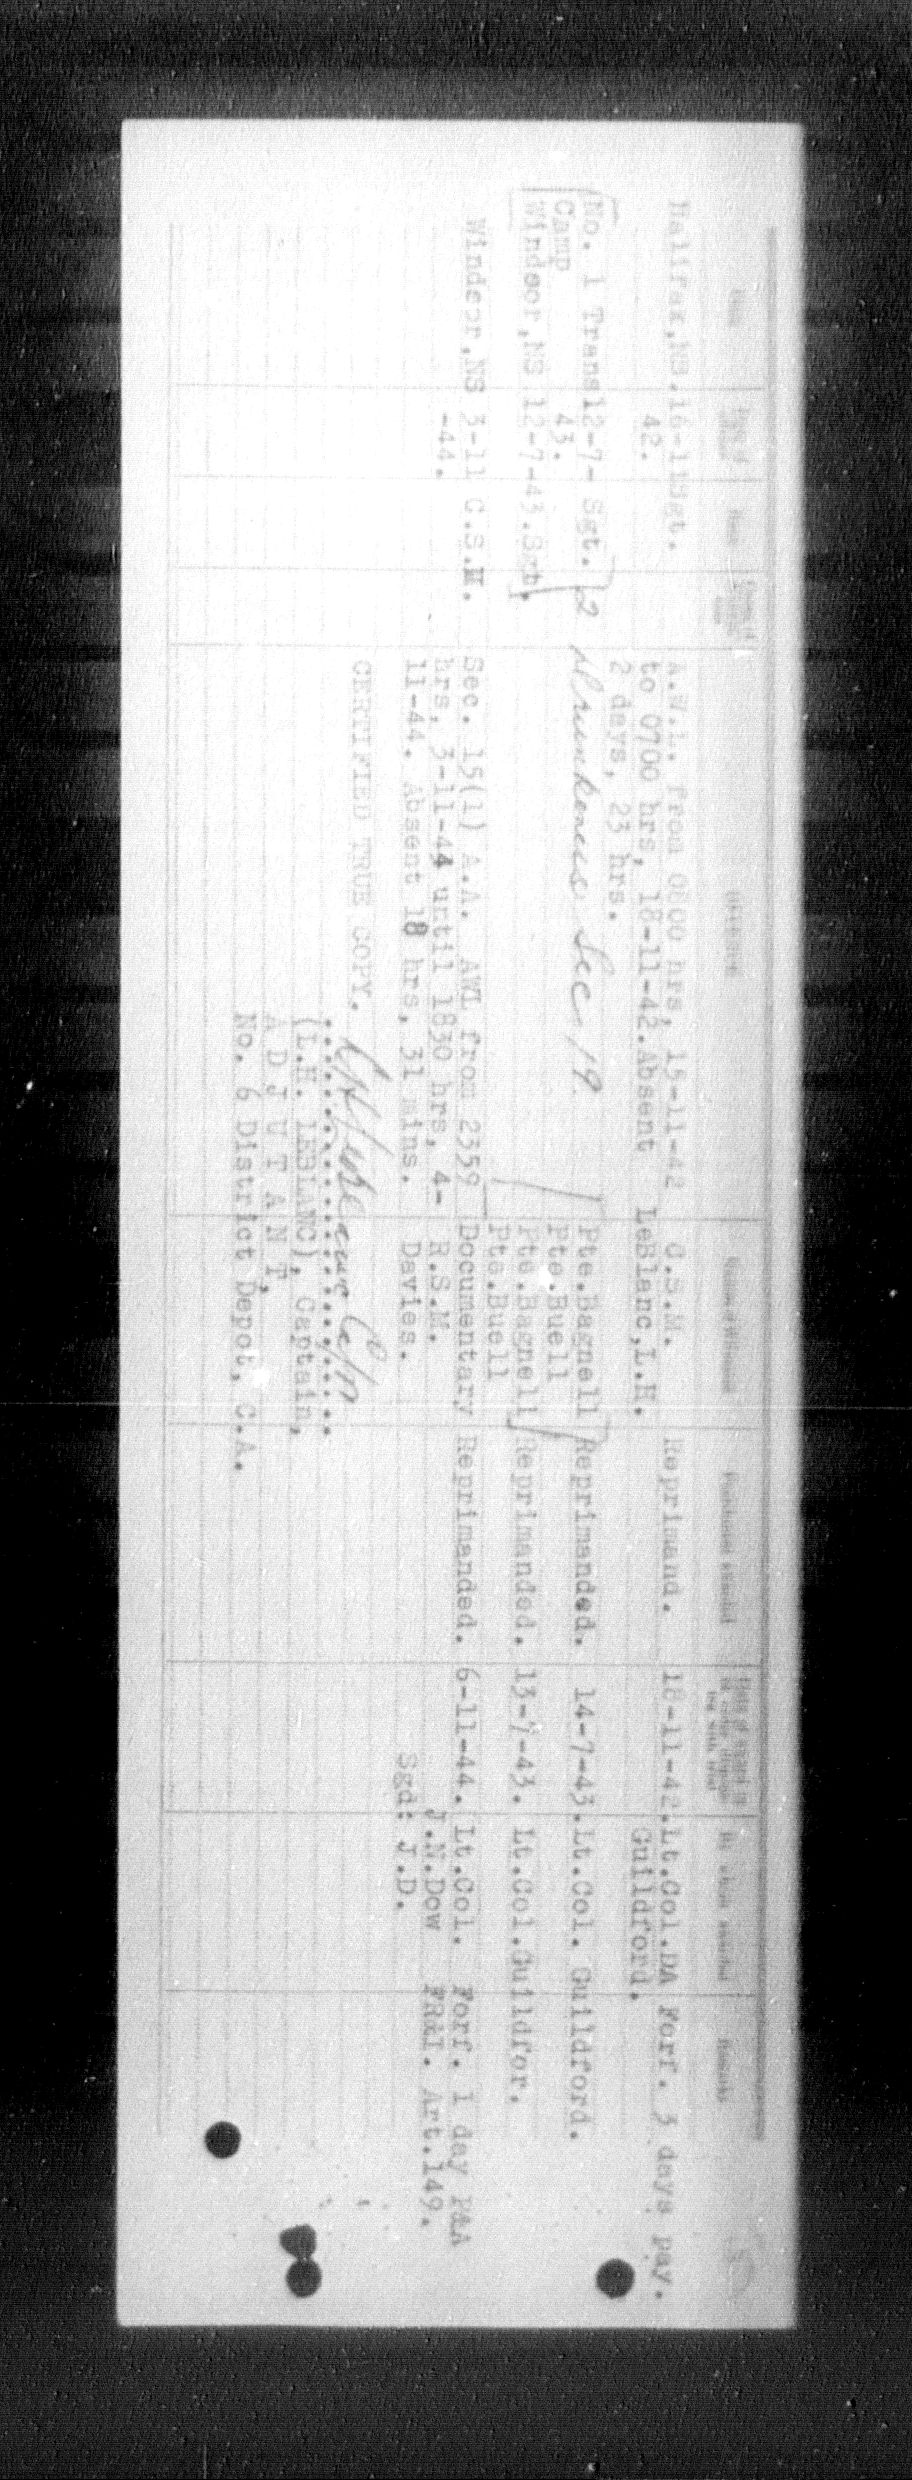 Place Rank Offence Names of Witnesses Punishment awarded By whom awarded Remarks
Halifax,NS. 15-11 Sgt. A.W.L. from 0800 hrs, 15-11-42 C.S.M. Reprimand. 18-11-42. Lt.Col.DA Forf. 3 days pay.
42. to 0700 hrs, 18-11-42. Absent LeBlanc,L.H. Guildford.
2 days, 23 hrs.
No. 1 Trans 12-7- Sgt. 2 Drunkenness Sec 19 Pte.Bagnell Reprimanded. 14-7-43. Lt.Col. Guildford.
Camp 43. Pte.Buell
Windsor,NS 12-7-43. Sgt. Pte.Bagnell Reprimanded. 13-7-43. Lt.Col.Guildfor.
Pte.Buell
Windsor,NS 3-11 C.S.M. Sec. 15(1) A.A. AWL from 2359 Documentary Reprimanded. 6-11-44. Lt.Col. Forf. 1 day P&A
-44. hrs, 3-11-44 until 1830 hrs, 4- R.S.M. J.N.Dow FR&I. Art.149.
11-44. Absent 18 hrs, 31 mins. Davies. Sgd: J.D.
CERTIFIED TRUE COPY.
(L.H. LEBLANC), Captain,
A D J U T A N T,
No. 6 District Depot, C.A.